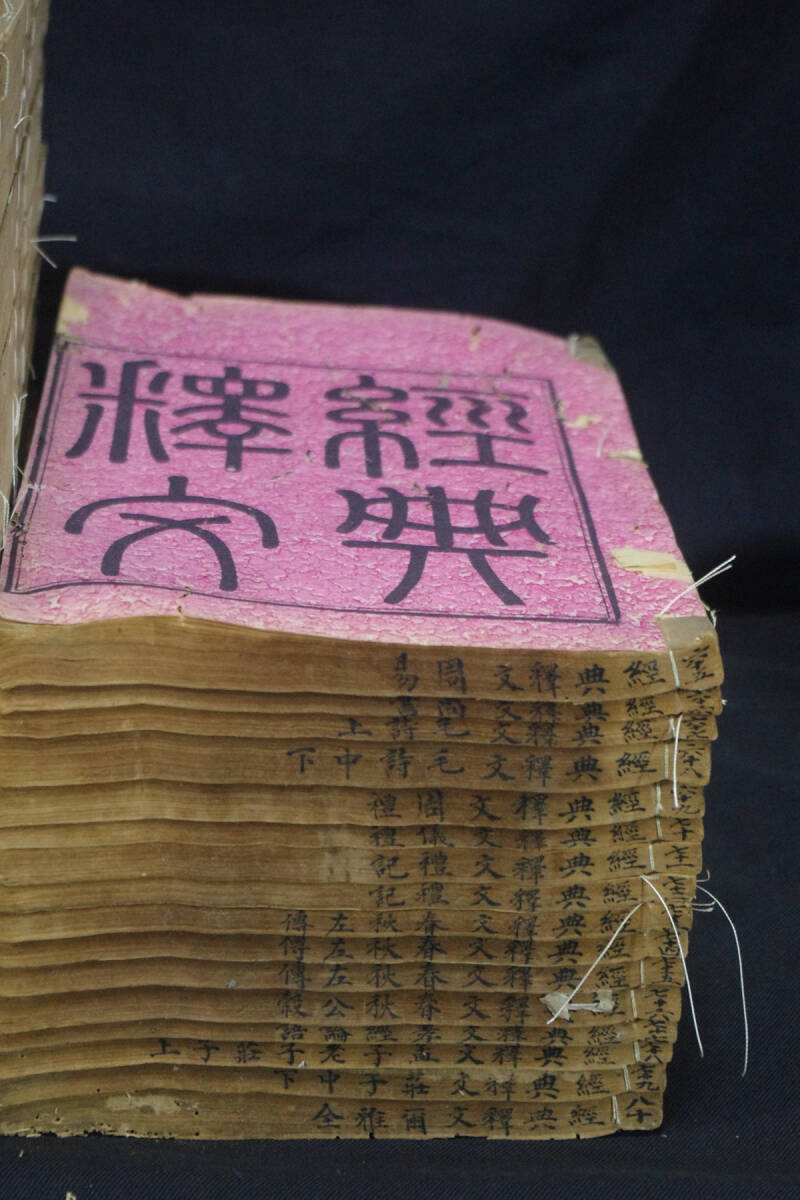 經典
釋文
經典釋文周易
經典釋文尚書
經典釋文毛詩上
經典釋文毛詩中下
經典釋文周禮
經典釋文儀禮
經典釋文禮記
經典釋文禮記
經典釋文春秋左傳
經典釋文春秋左傳
經典釋文春秋左傳
經典釋文春秋公穀
經典釋文孝經論語
經典釋文孟子老子莊子上
經典釋文莊子中下
經典釋文爾雅全
六十八
六十九
七十
七十四
七十五
七十六
七十七
七十八
七十九
八十